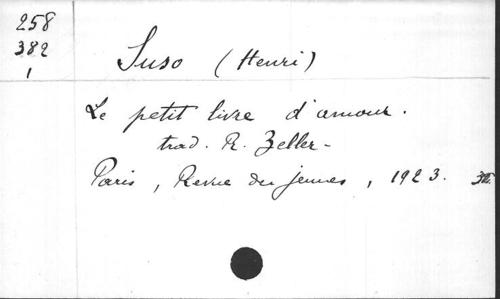 258
382
1
Suso (Henri)
Le petit livre d'amour.
trad. R. Zeller -
Paris, Revue des jeunes, 1923.